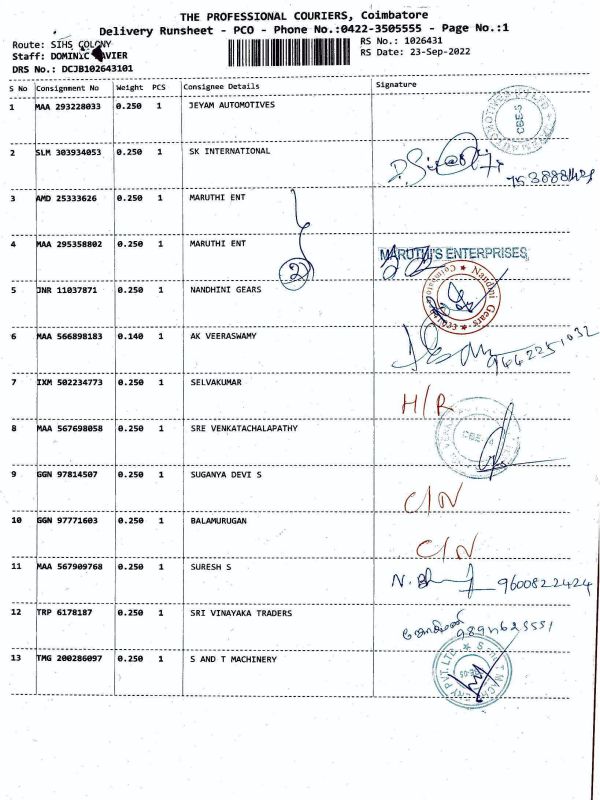 THE PROFESSIONAL COURIERS, Coimbatore
Delivery Runsheet - PCO - Phone No.:0422-3505555 - Page No.:1
Route: SIHS COLONY
RS No.: 1026431
Staff: DOMINIC
RS Date: 23-Sep-2022
DRS No.: DCJB102643101
S No Consignment No Weight PCS Consignee Details Signature
1 MAA 293228033 0.250 1 JEYAM AUTOMOTIVES
2 SLM 303934053 0.250 1 SK INTERNATIONAL
3 AMD 25333626 0.250 1 MARUTHI ENT
4 MAA 295358802 0.250 1 MARUTHI ENT 2 MARUTHI'S ENTERPRISES
5 JNR 11037871 0.250 1 NANDHINI GEARS Nandhini Gears Coimbatore
6 MAA 566898183 0.140 1 AK VEERASWAMY
7 IXM 502234773 0.250 1 SELVAKUMAR H/R
8 MAA 567698058 0.250 1 SRE VENKATACHALAPATHY
9 GGN 97814507 0.250 1 SUGANYA DEVI S C/N
10 GGN 97771603 0.250 1 BALAMURUGAN C/N
11 MAA 567909768 0.250 1 SURESH S 9600822424
12 TRP 6178187 0.250 1 SRI VINAYAKA TRADERS
13 TMG 200286097 0.250 1 S AND T MACHINERY